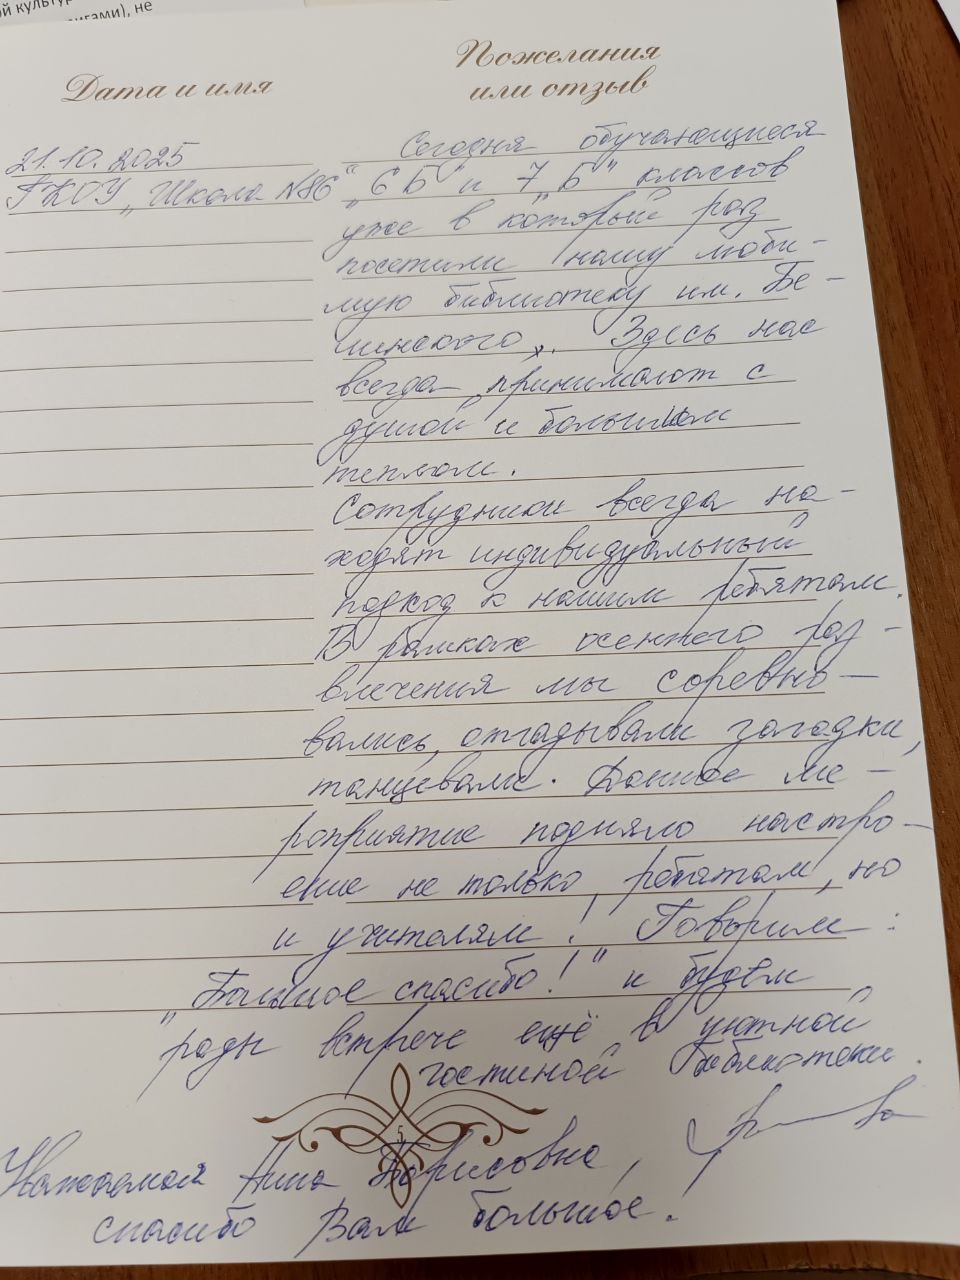 ой культур
игами), не
Дата и имя
Пожелания
или отзыв
21.10.2025
ГКОУ „Школа №86"
Сегодня обучающиеся
„6 Б" и 7 „Б" классов
уже в который раз
посетили нашу люби-
мую библиотеку им. Бе-
линского. Здесь нас
всегда принимают с
душой и большим
теплом.
Сотрудники всегда на-
ходят индивидуальный
подход к нашим ребятам.
В рамках осеннего раз-
влечения мы соревно-
вались, отгадывали загадки,
танцевали. Данное ме-
роприятие подняло настро-
ение не только ребятам, но
и учителям! Говорим:
„Большое спасибо!" и будем
рады встрече ещё в уютной
гостиной библиотеки.
5
Уважаемая Анна Борисовна,
спасибо Вам большое!